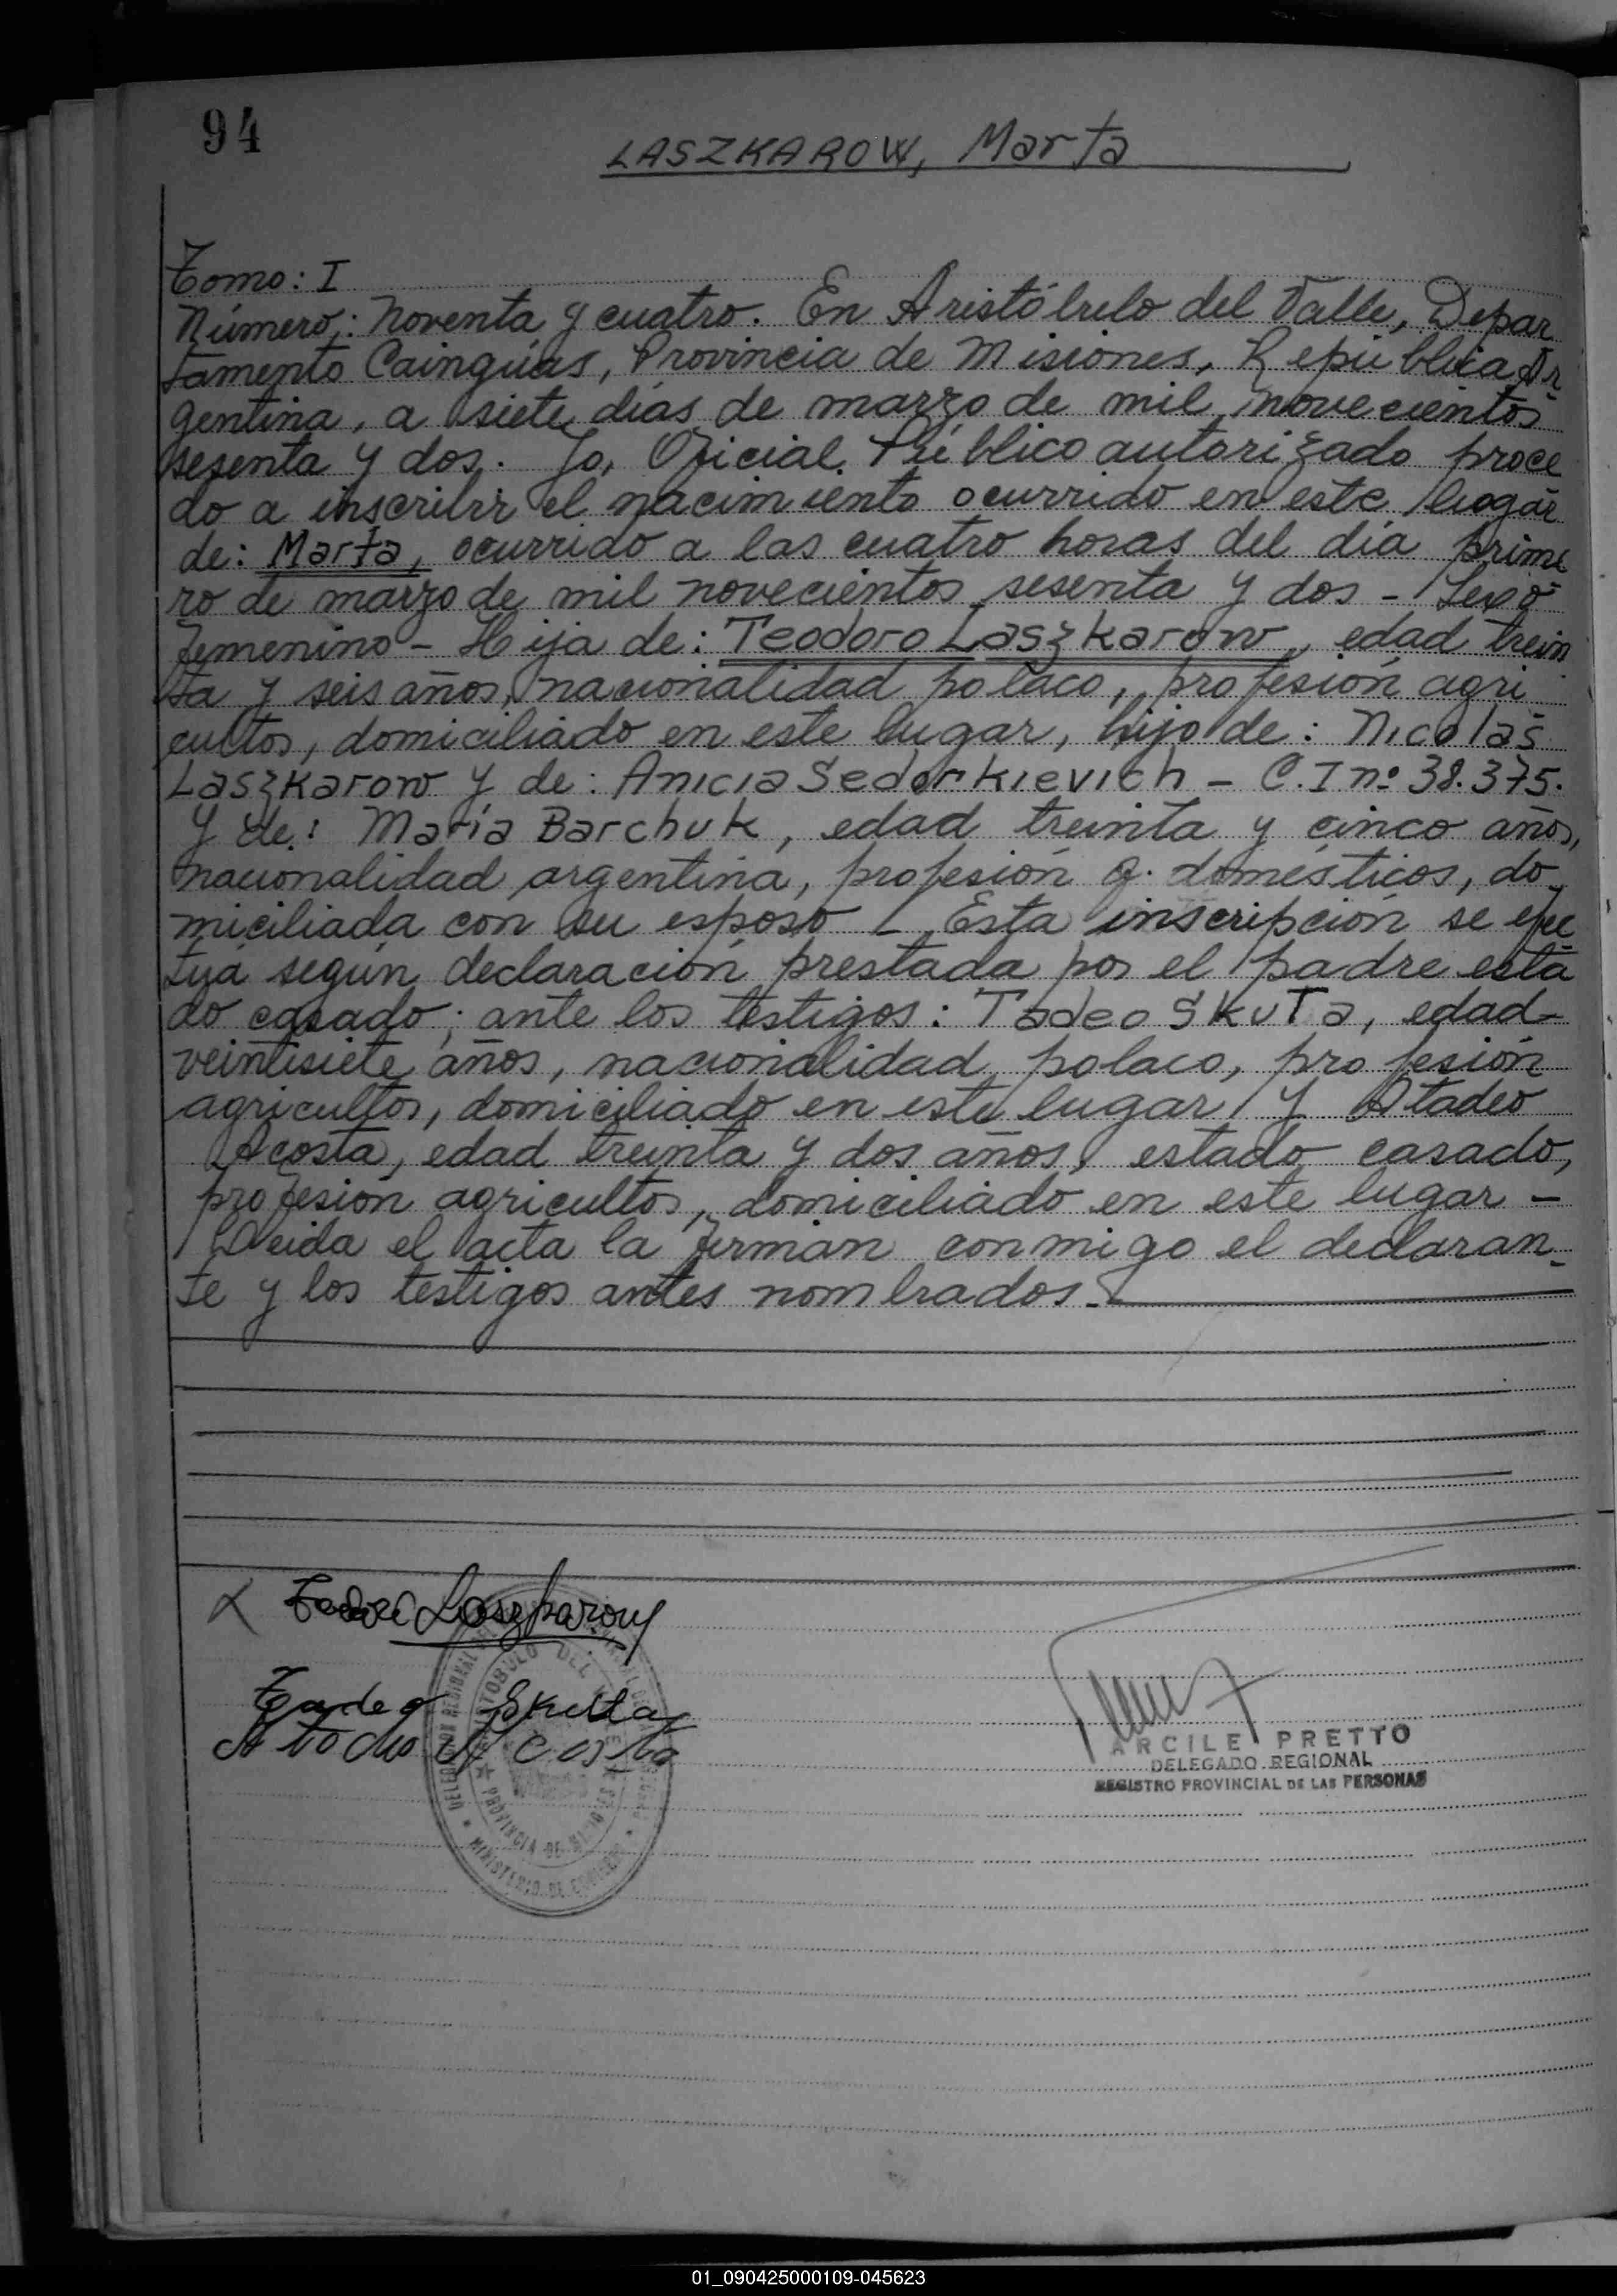 94
LASZKAROW, Marta
Tomo: I
Número: Noventa y cuatro. En Aristóbulo del Valle, Depar
tamento Cainguás, Provincia de Misiones, República Ar
gentina, a siete días de marzo de mil novecientos
sesenta y dos. Yo, Oficial Público autorizado proce
do a inscribir el nacimiento ocurrido en este hogar
de: Marta, ocurrido a las cuatro horas del día prime
ro de marzo de mil novecientos sesenta y dos - Sexo
femenino - Hija de: Teodoro Laszkarow, edad trein
ta y seis años, nacionalidad polaco, profesión agri
cultor, domiciliado en este lugar, hijo de: Nicolás
Laszkarow y de: Anicia Sedorkievich - C.I nº 38.375.
Y de: María Barchuk, edad treinta y cinco años,
nacionalidad argentina, profesión q. domésticos, do
miciliada con su esposo - Esta inscripción se efec
túa según declaración prestada por el padre esta
do casado; ante los testigos: Tadeo Skuta, edad
veintisiete años, nacionalidad polaco, profesión
agricultor, domiciliado en este lugar y
Acosta, edad treinta y dos años, estado casado,
profesión agricultor, domiciliado en este lugar -
Leida el acta la firman conmigo el declaran
te y los testigos antes nombrados.-
Laszkarow
Tadeo Skuta
Acosta
ARCILE PRETTO
DELEGADO REGIONAL
REGISTRO PROVINCIAL DE LAS PERSONAS
01_090425000109-045623